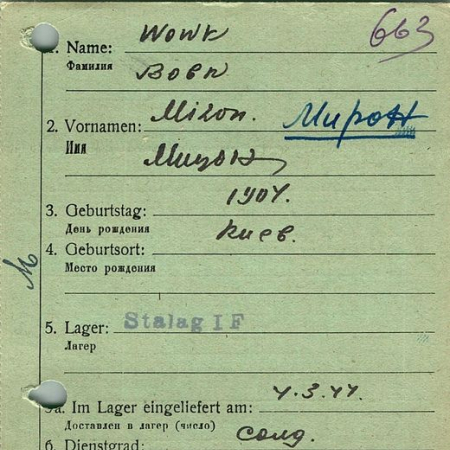 663
1. Name: Wowk
Фамилия Вовк
2. Vornamen: Miron. Мирон
Имя Мирон
3. Geburtstag: 1904.
День рождения
Киев.
4. Geburtsort:
Место рождения
М
5. Lager: Stalag I F
Лагер
5a. Im Lager eingeliefert am: 4.3.44.
Доставлен в лагер (число)
6. Dienstgrad: солд.